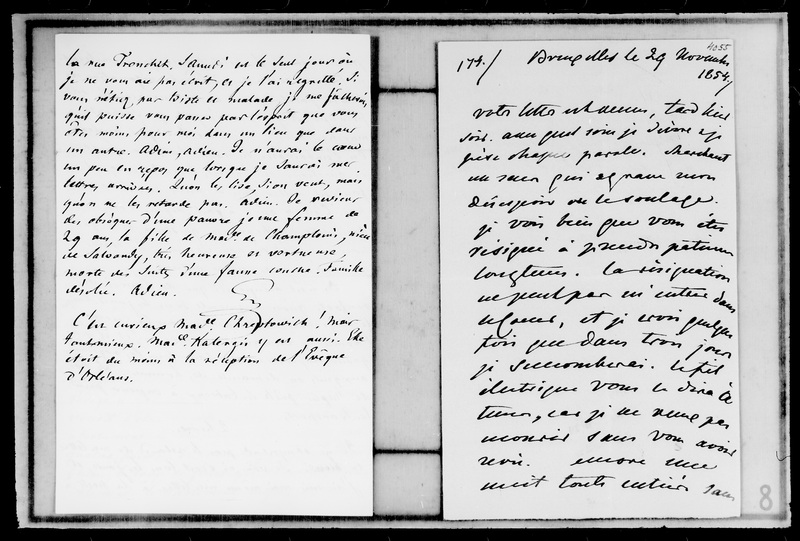 la rue Tronchet. Samedi est le seul jour où
je ne vous aie pas écrit, et je l'ai regretté. Si
vous n'étiez, par triste et malade, je me fâcherais
qu'il puisse vous passer par l'esprit que vous
êtes moins pour moi dans un lieu que dans
un autre. Adieu, Adieu. Je n'aurai le cœur
un peu en repos que lorsque je saurai mes
lettres arrivées. Qu'on les lise, si on veut, mais
qu'on ne les retarde pas. Adieu. Je reviens
des obsèques d'une pauvre jeune femme de
29 ans, la fille de Mad. de Champlouis, nièce
de Salvandy, très heureuse et vertueuse,
morte des suites d'une fausse couche. Famille
désolée. Adieu.
C'est curieux Made Chreptowich ! Mais
Mad. Kalergis y est aussi. Elle
était du moins à la réception de l'Evêque
d'Orléans.
4055
174/ Bruxelles le 29 Novembre
1854/
votre lettre est venue, tard hier
soir. avec quel soin je dévore et je
pèse chaque parole. cherchant
un sens qui aggrave mon
désespoir ou le soulage.
je vois bien que vous êtes
résigné à prendre patience
longtems. la résignation
ne peut pas m'entrer dans
le cœur, et je crois quelque
fois que dans trois jours
je succomberai. le fil
électrique vous le dira à
tems, car je ne veux pas
mourir sans vous avoir
revu. encore une
nuit toute entière sans
8